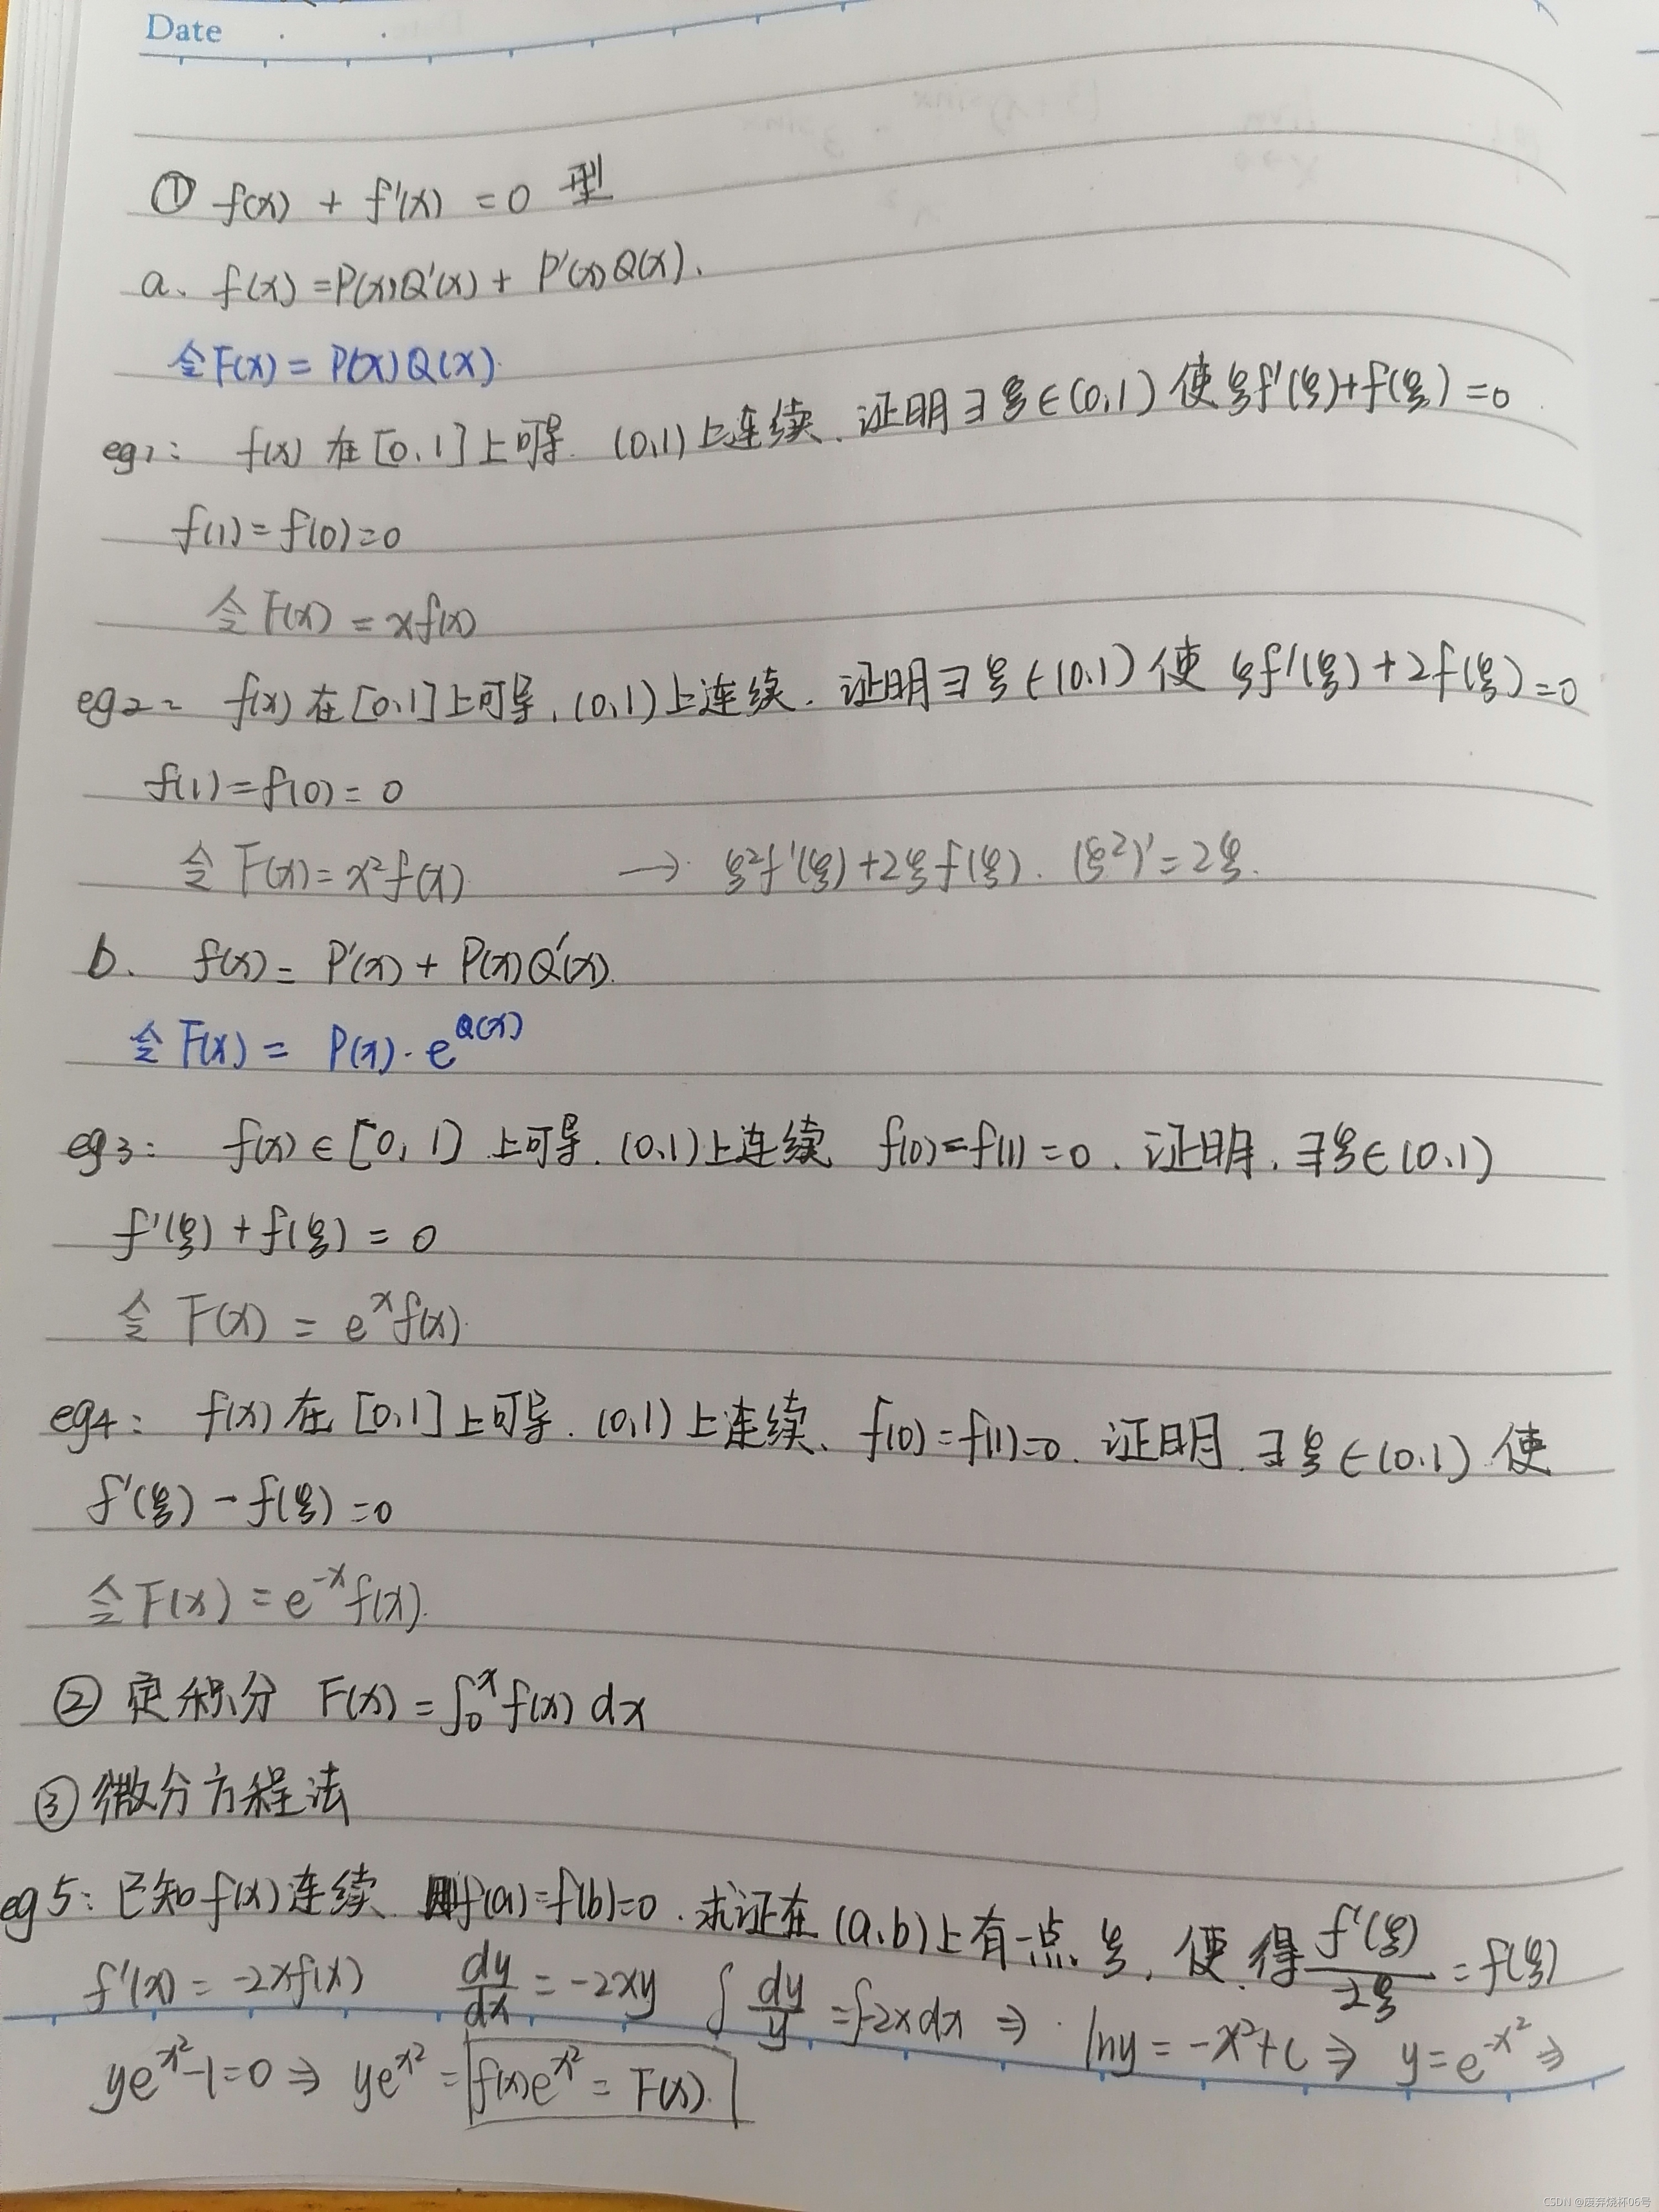 Date
① f(x) + f'(x) = 0 型
a、f(x) = P(x)Q'(x) + P'(x)Q(x).
令F(x) = P(x)Q(x).
eg1: f(x) 在 [0,1] 上可导. (0,1) 上连续. 证明 ∃ ξ ∈ (0,1) 使 ξf'(ξ)+f(ξ) = 0
f(1) = f(0) = 0
令 F(x) = xf(x)
eg2: f(x) 在 [0,1] 上可导, (0,1) 上连续. 证明 ∃ ξ ∈ (0,1) 使 ξf'(ξ) + 2f(ξ) = 0
f(1) = f(0) = 0
令 F(x) = x²f(x) → ξ²f'(ξ) + 2ξf(ξ). (ξ²)' = 2ξ.
b. f(x) = P'(x) + P(x)Q'(x).
令 F(x) = P(x)·e^{Q(x)}
eg3: f(x) ∈ [0,1] 上可导. (0,1) 上连续 f(0) = f(1) = 0. 证明. ∃ξ ∈ (0,1)
f'(ξ) + f(ξ) = 0
令 F(x) = e^x f(x).
eg4: f(x) 在 [0,1] 上可导. (0,1) 上连续、f(0) = f(1) = 0. 证明. ∃ξ ∈ (0,1) 使
f'(ξ) - f(ξ) = 0
令 F(x) = e^{-x} f(x).
② 定积分 F(x) = ∫₀ˣ f(x) dx
③ 微分方程法
eg5: 已知f(x)连续 f(a)=f(b)=0. 求证在(a,b)上有一点ξ, 使得 f'(ξ)/2ξ = f(ξ)
f'(x) = -2xf(x) dy/dx = -2xy ∫ dy/y = ∫-2xdx ⇒ lny = -x²+C ⇒ y = e^{-x²} ⇒
ye^{x²}-1=0 ⇒ ye^{x²} = f(x)e^{x²} = F(x).
CSDN @废弃烧杯06号